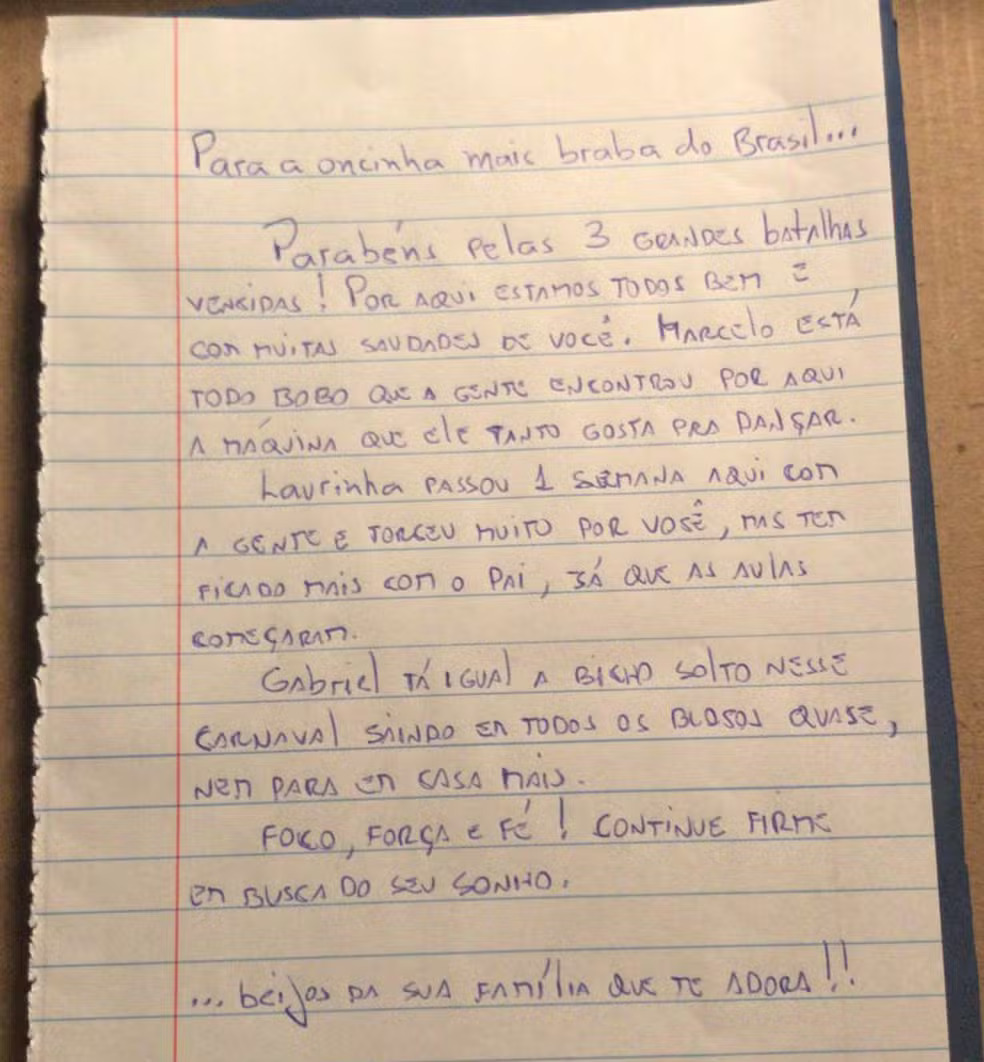 Para a oncinha mais braba do Brasil...
Parabéns pelas 3 GRANDES batalhas
VENCIDAS! POR AQUI ESTAMOS TODOS BEM E
COM MUITAS SAUDADES DE VOCÊ. MARCELO ESTÁ
TODO BOBO QUE A GENTE ENCONTROU POR AQUI
A MÁQUINA QUE ELE TANTO GOSTA PRA DANÇAR.
Laurinha PASSOU 1 SEMANA AQUI COM
A GENTE E TORCEU MUITO POR VOCÊ, MAS TEM
FICADO MAIS COM O PAI, JÁ QUE AS AULAS
COMEÇARAM.
GAbriel TÁ IGUAL A BICHO SOLTO NESSE
CARNAVAL SAINDO EM TODOS OS BLOCOS QUASE,
NEM PARA EM CASA MAIS.
FOCO, FORÇA E FÉ! CONTINUE FIRME
EM BUSCA DO SEU SONHO.
... beijos DA SUA FAMÍLIA QUE TE ADORA!!